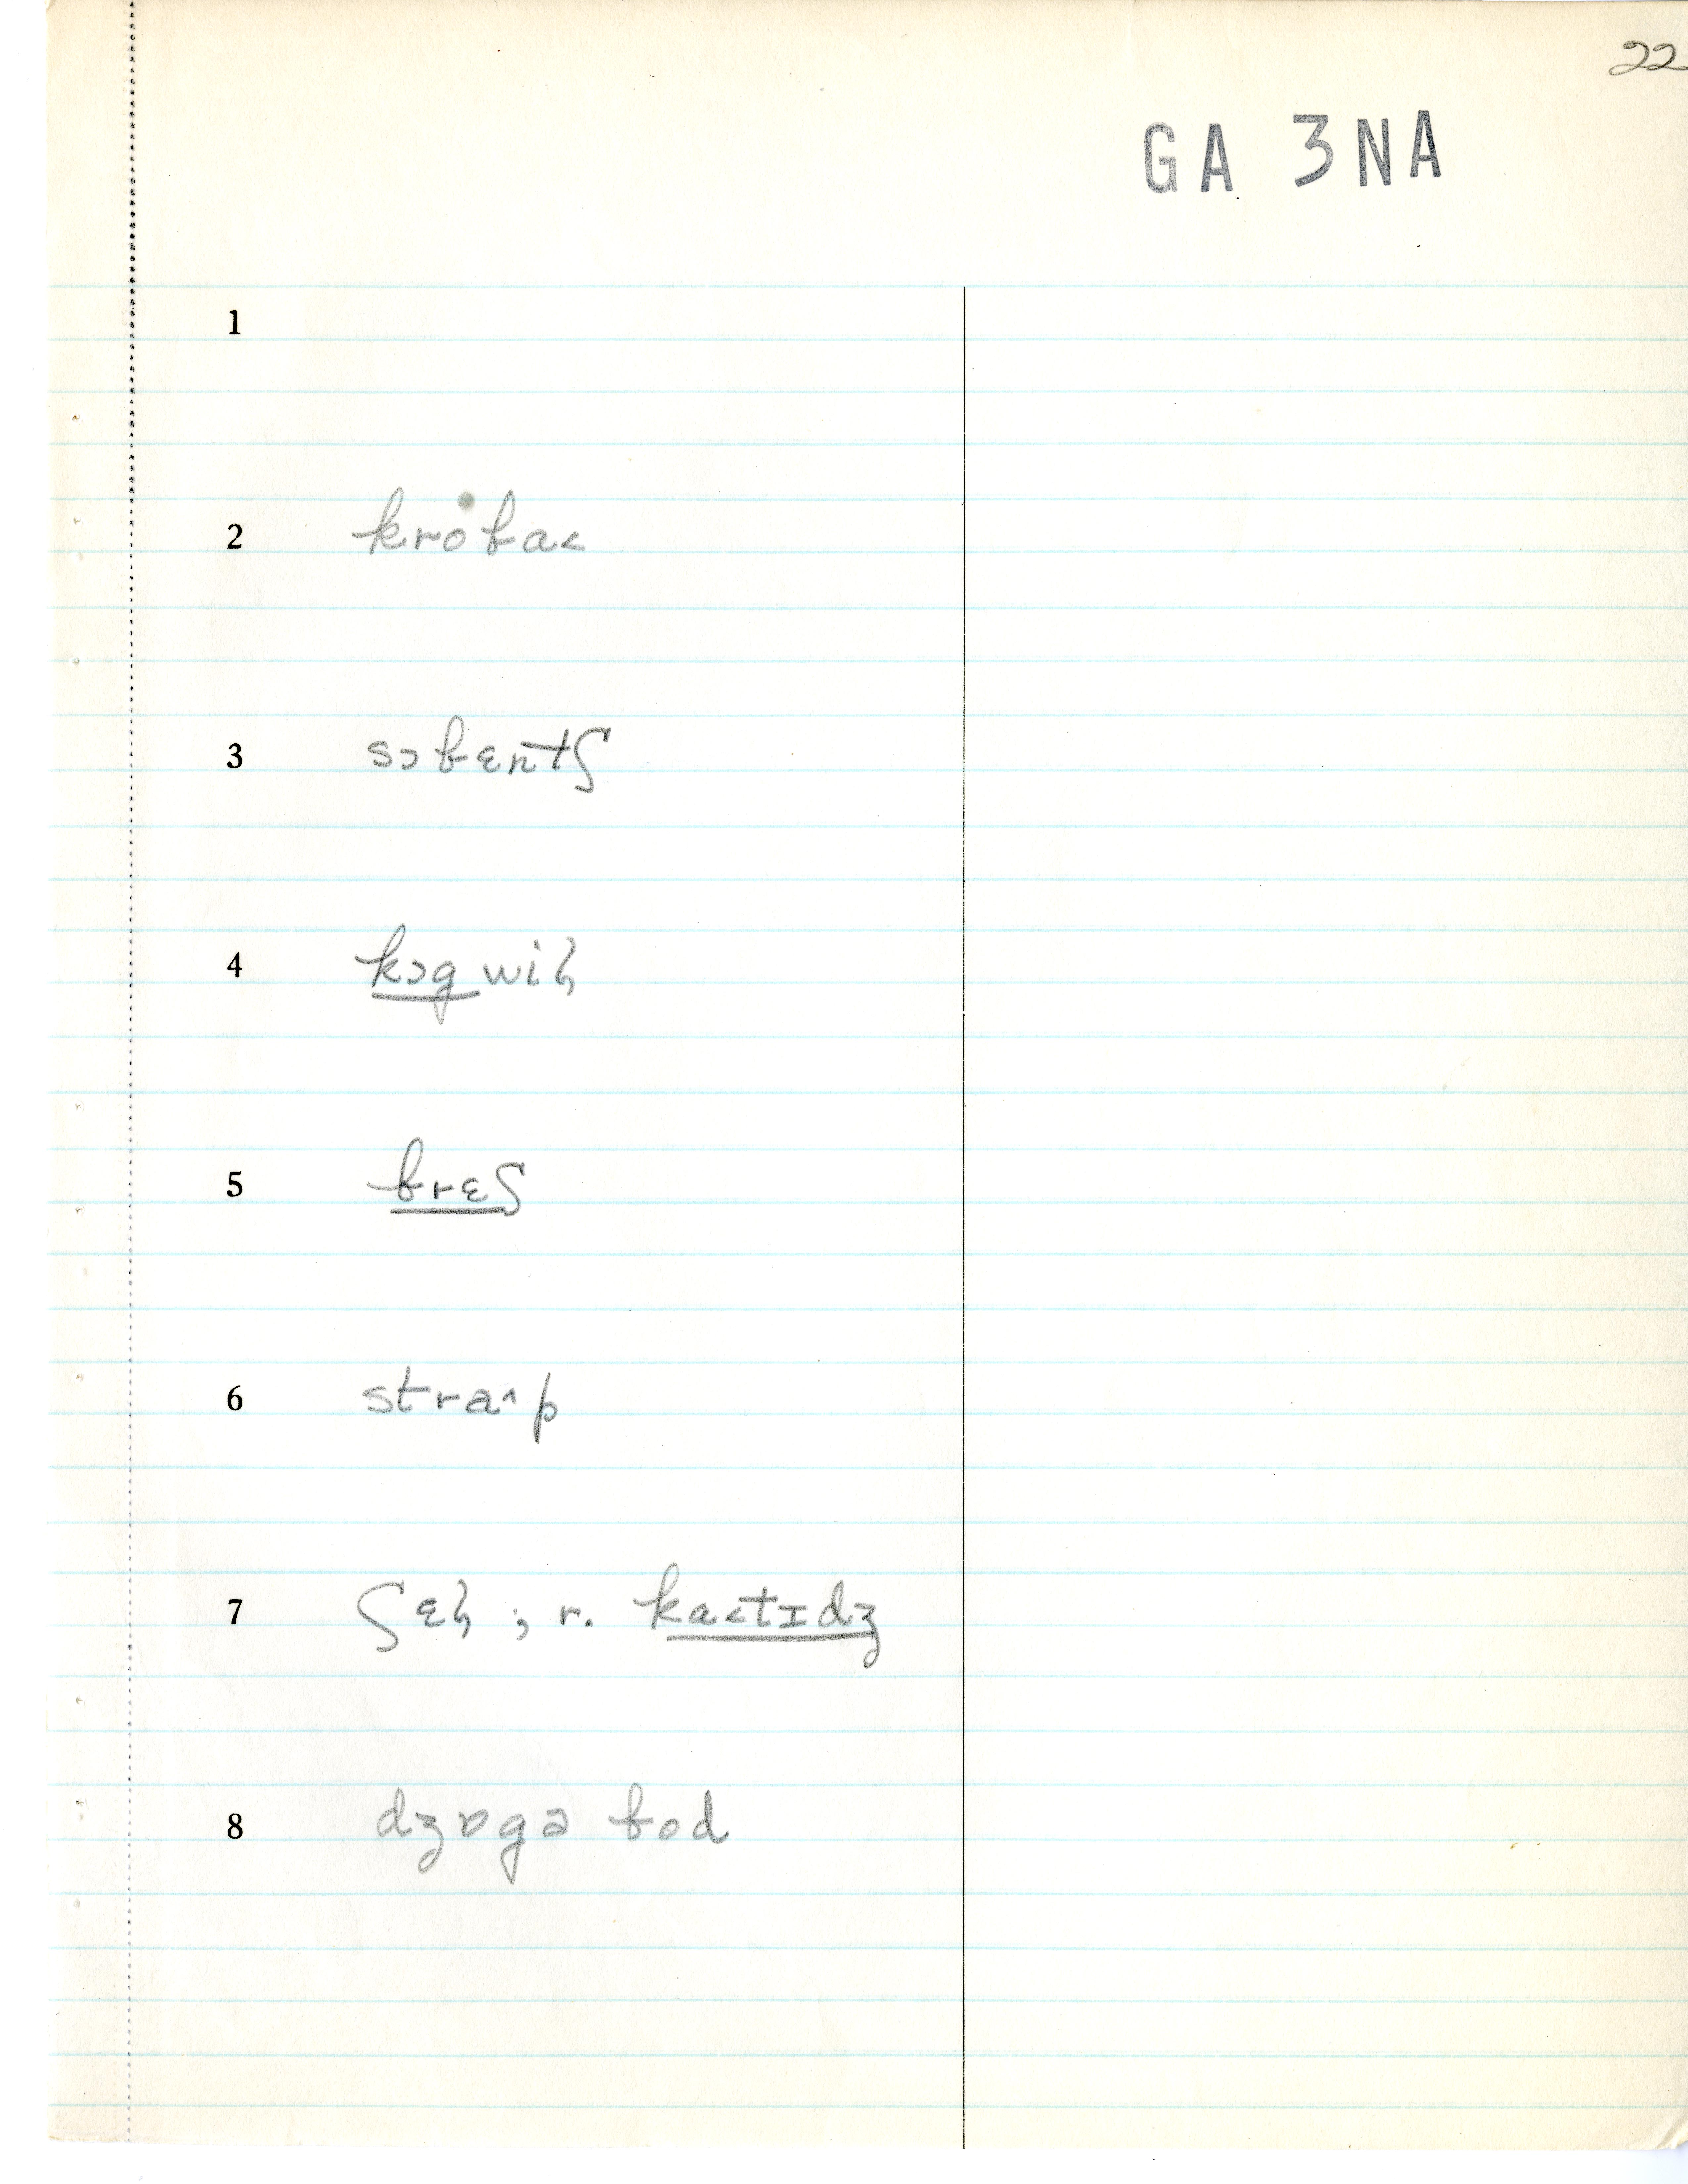 22
GA 3NA
1
2 krobaʿ
3 sɔbɛntʃ
4 kɔg wiɫ
5 brɛʃ
6 straˆp
7 ʃɛɫ ; r. ka˂tɪdʒ
8 dʒɒgə bod